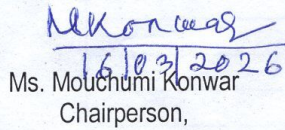 MKonwar
16/03/2026
Ms. Mouchumi Konwar
Chairperson,